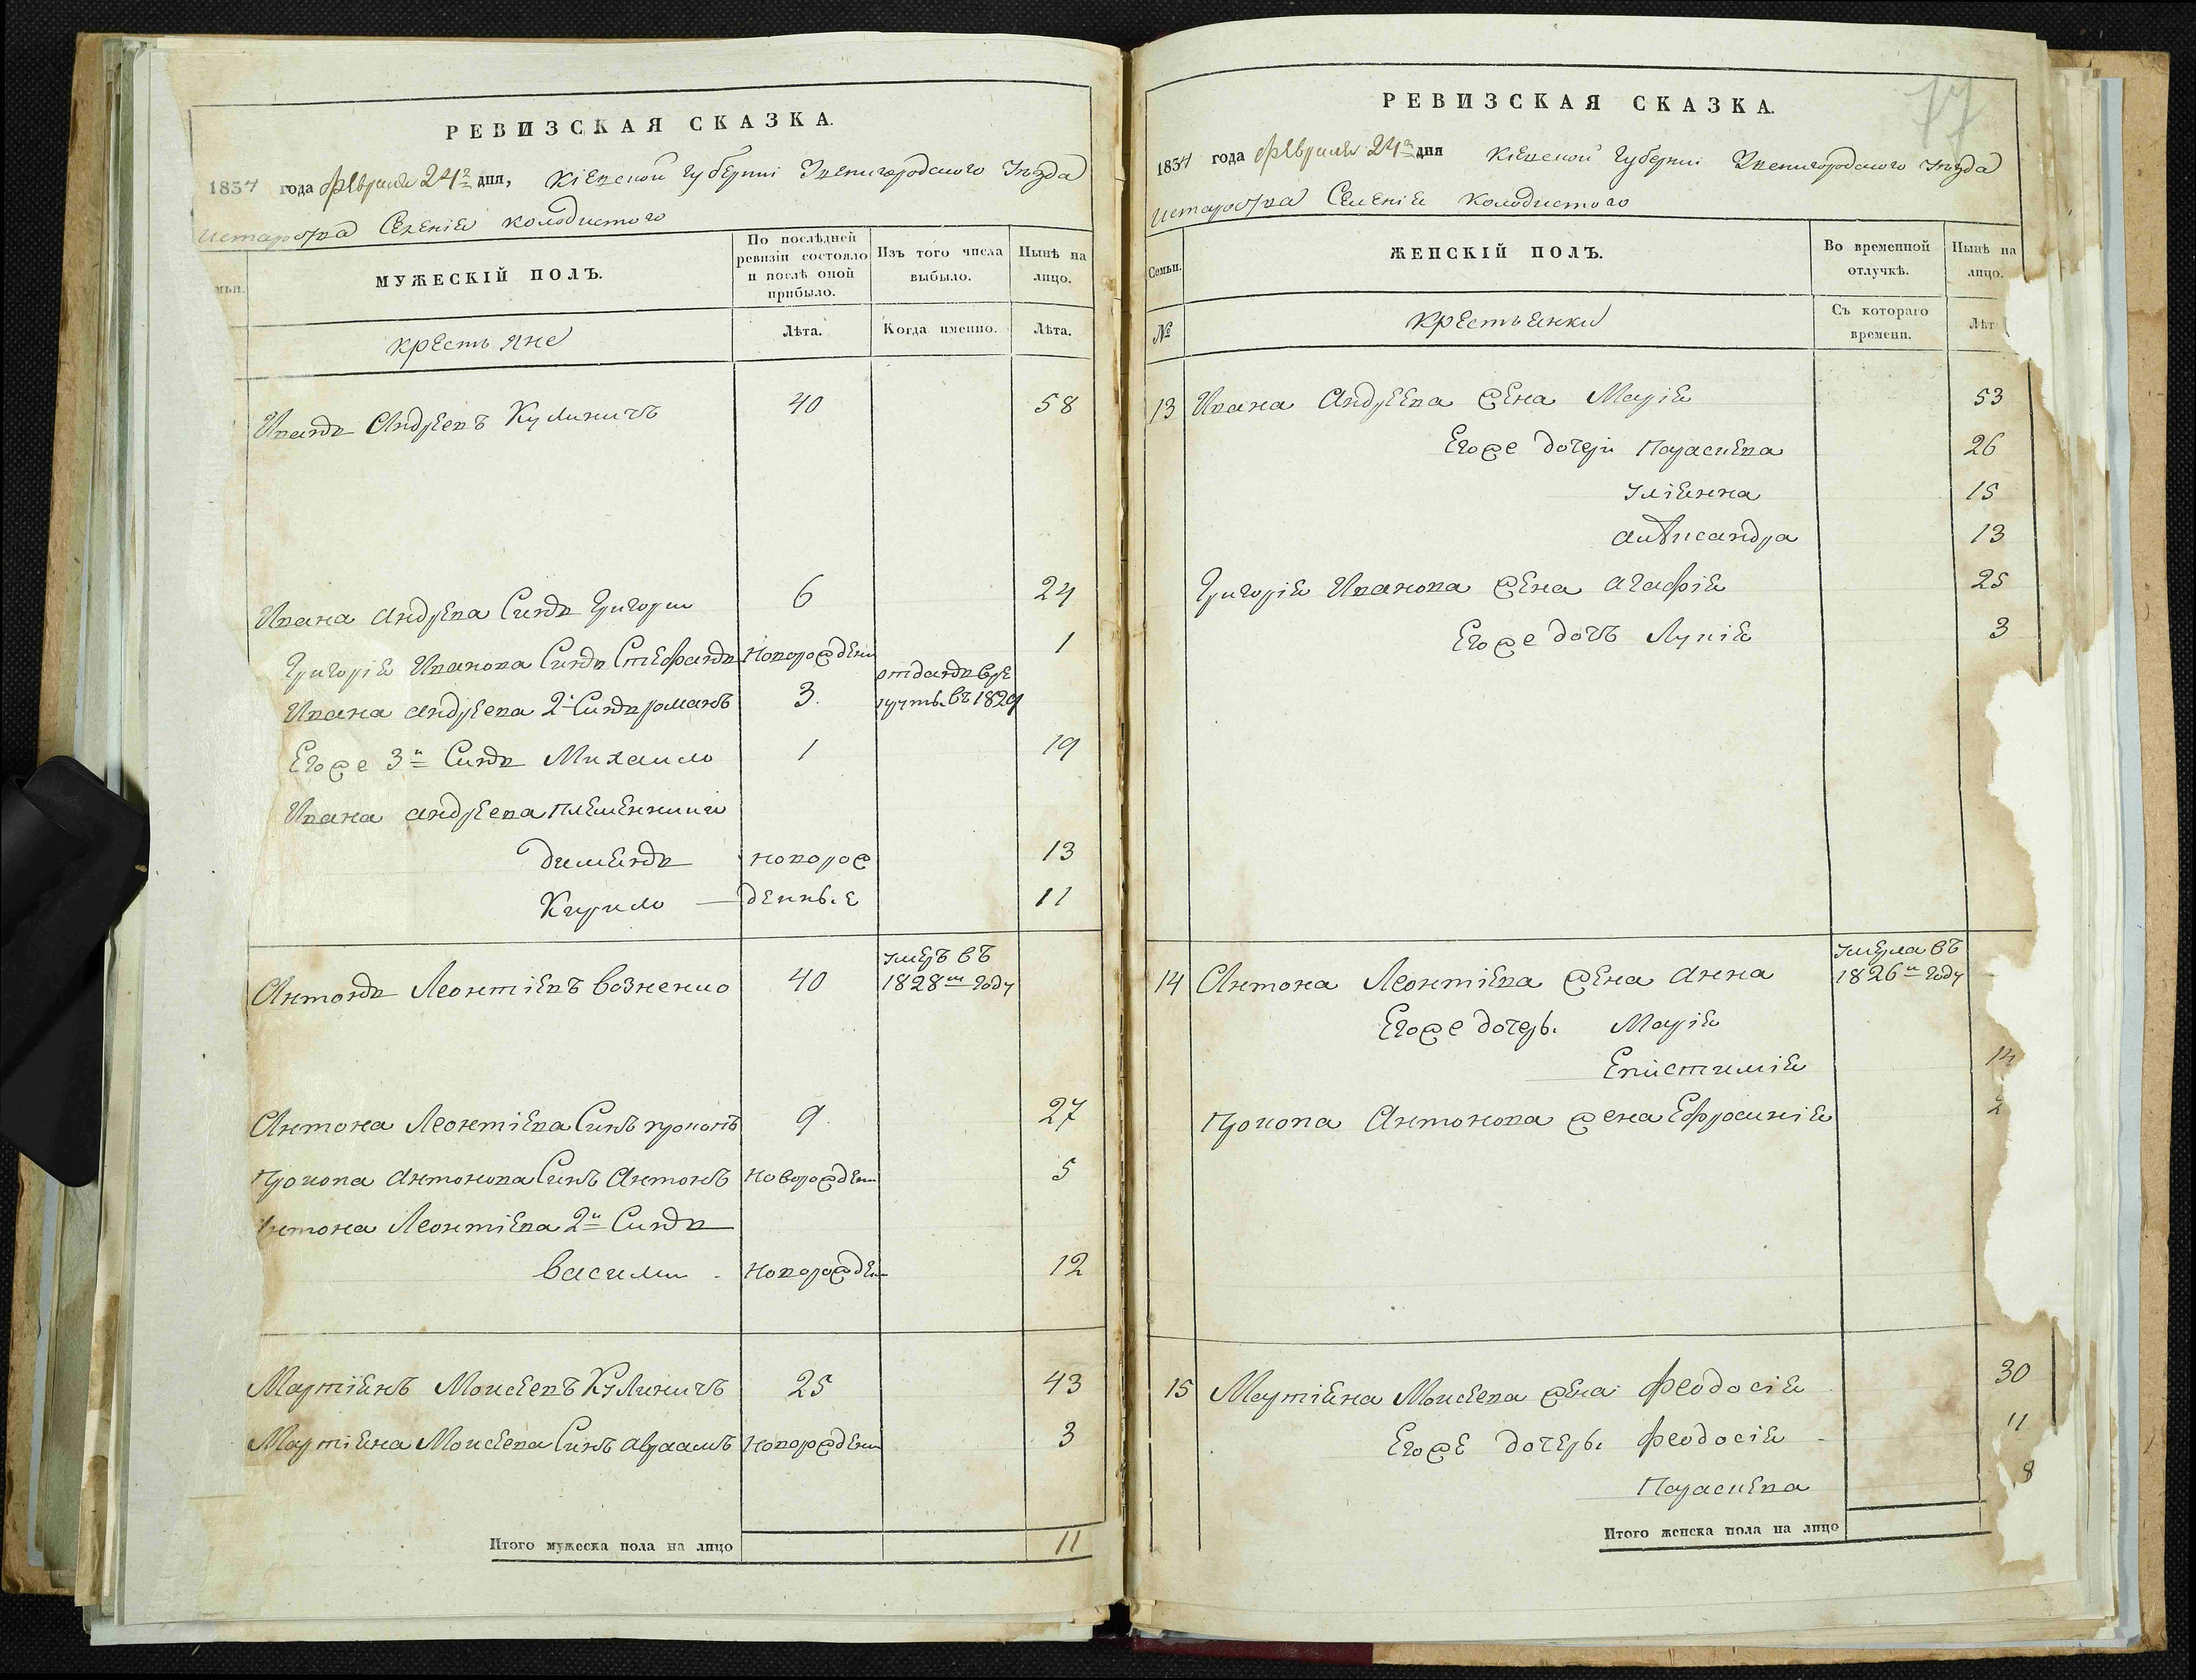 РЕВИЗСКАЯ СКАЗКА.
1834 года февраля 24го дня, Кіевской губерніи Звенигородского уезда
староства Селенія Колодистого
МУЖЕСКІЙ ПОЛЪ.
По послѣдней ревизіи состояло и послѣ оной прибыло.
Изъ того числа выбыло.
Нынѣ на лицо.
крестьяне
Лѣта.
Когда именно.
Лѣта.
Иванъ Андреевъ Кулиничъ 40 58
Ивана Андрева Синъ Григори 6 24
Григорія Иванова Синъ Стефанъ новорожден 1
Ивана Андреева 2й Синъ романъ 3. отданъ в ре круты въ 1829
Егоже 3й Синъ Михаило 1 19
Ивана андреева племенники
димянъ новорож 13
Кирило — денные 11
Антонъ Леонтіевъ Вознено 40 умеръ въ 1828м году
Антона Леонтіева Синъ прокопъ 9. 27
прокопа Антонова Синъ Антонъ новорожден 5
Антона Леонтіева 2й Синъ
васили новорожден 12
Мартіянъ Моисеевъ Кулиничъ 25 43
Мартіяна Моисеева Синъ авраамъ новорожден 3
Итого мужеска пола на лицо 11
77
РЕВИЗСКАЯ СКАЗКА.
1834 года февраля 24го дня Кіевской губерніи Звенигородского уезда
староства Селенія Колодистого
Семьи.
ЖЕНСКІЙ ПОЛЪ.
Во временной отлучкѣ.
Нынѣ на лицо.
№
крестьянки
Съ котораго времени.
Лѣт
13 Ивана Андреева жена Марія 53
Егоже дочери Параскева 26
Уліянна 15
александра 13
Григорія Иванова жена агафія 25
Егоже дочъ Лукія 3
14 Антона Леонтіева жена анна умерла въ 1826м году
Егоже дочерь Марія
Епистимія 14
прокопа Антонова жена Ефросинія 2
15 Мартіяна Моисеева жена феодосія 30
Егоже дочерь феодосія 11
Параскева 8
Итого женска пола на лицо